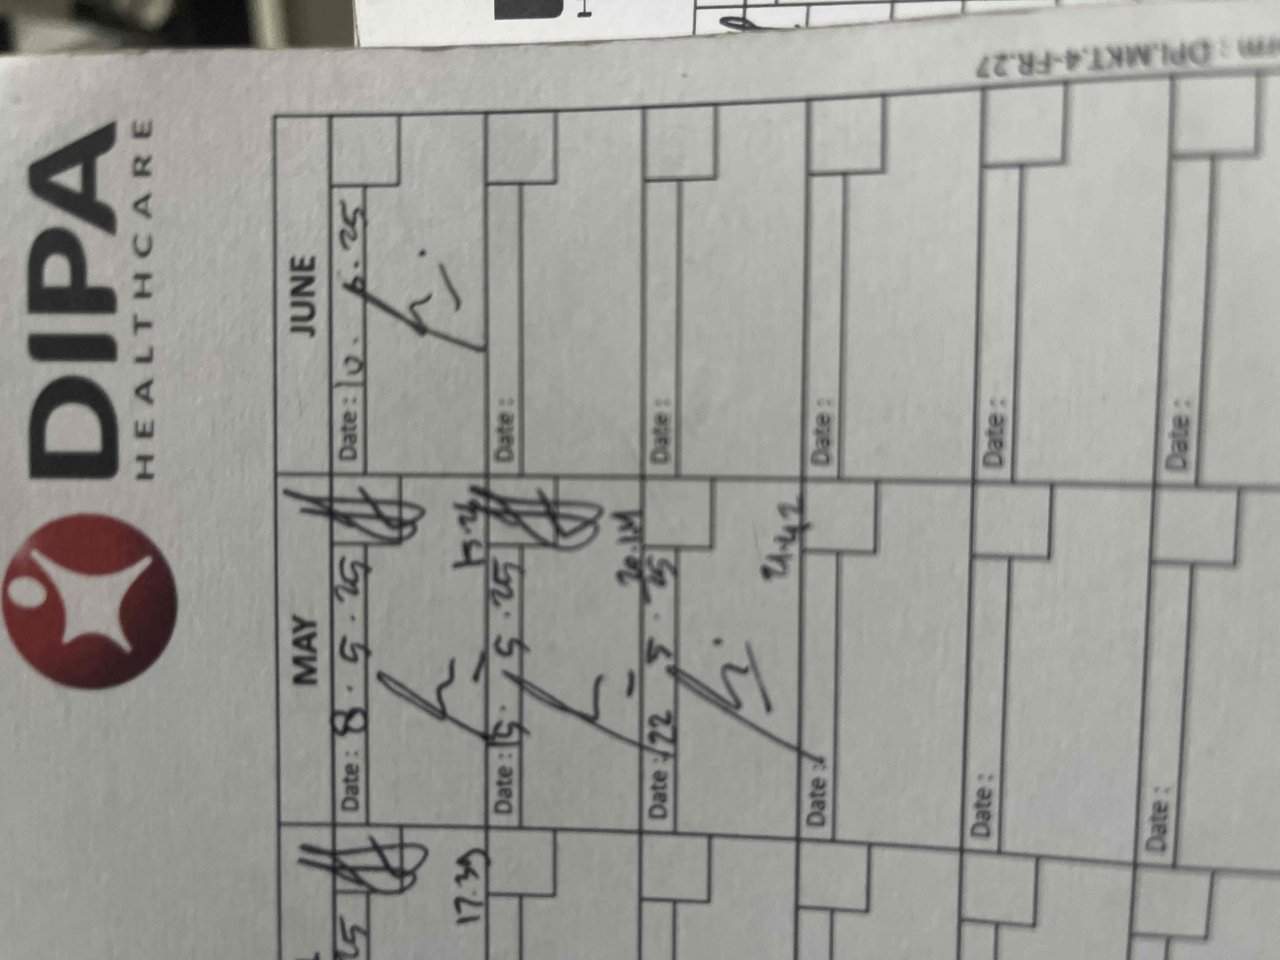 DIPA
HEALTHCARE
rm : DPI.MKT.4-FR.27
MAY
JUNE
Date : 8 . 5 . 25
Date : 10 . 6 . 25
17.39
Date : 15 . 5 . 25
Date :
Date : 22 . 5 . 25
Date :
21.42
Date :
Date :
Date :
Date :
Date :
Date :